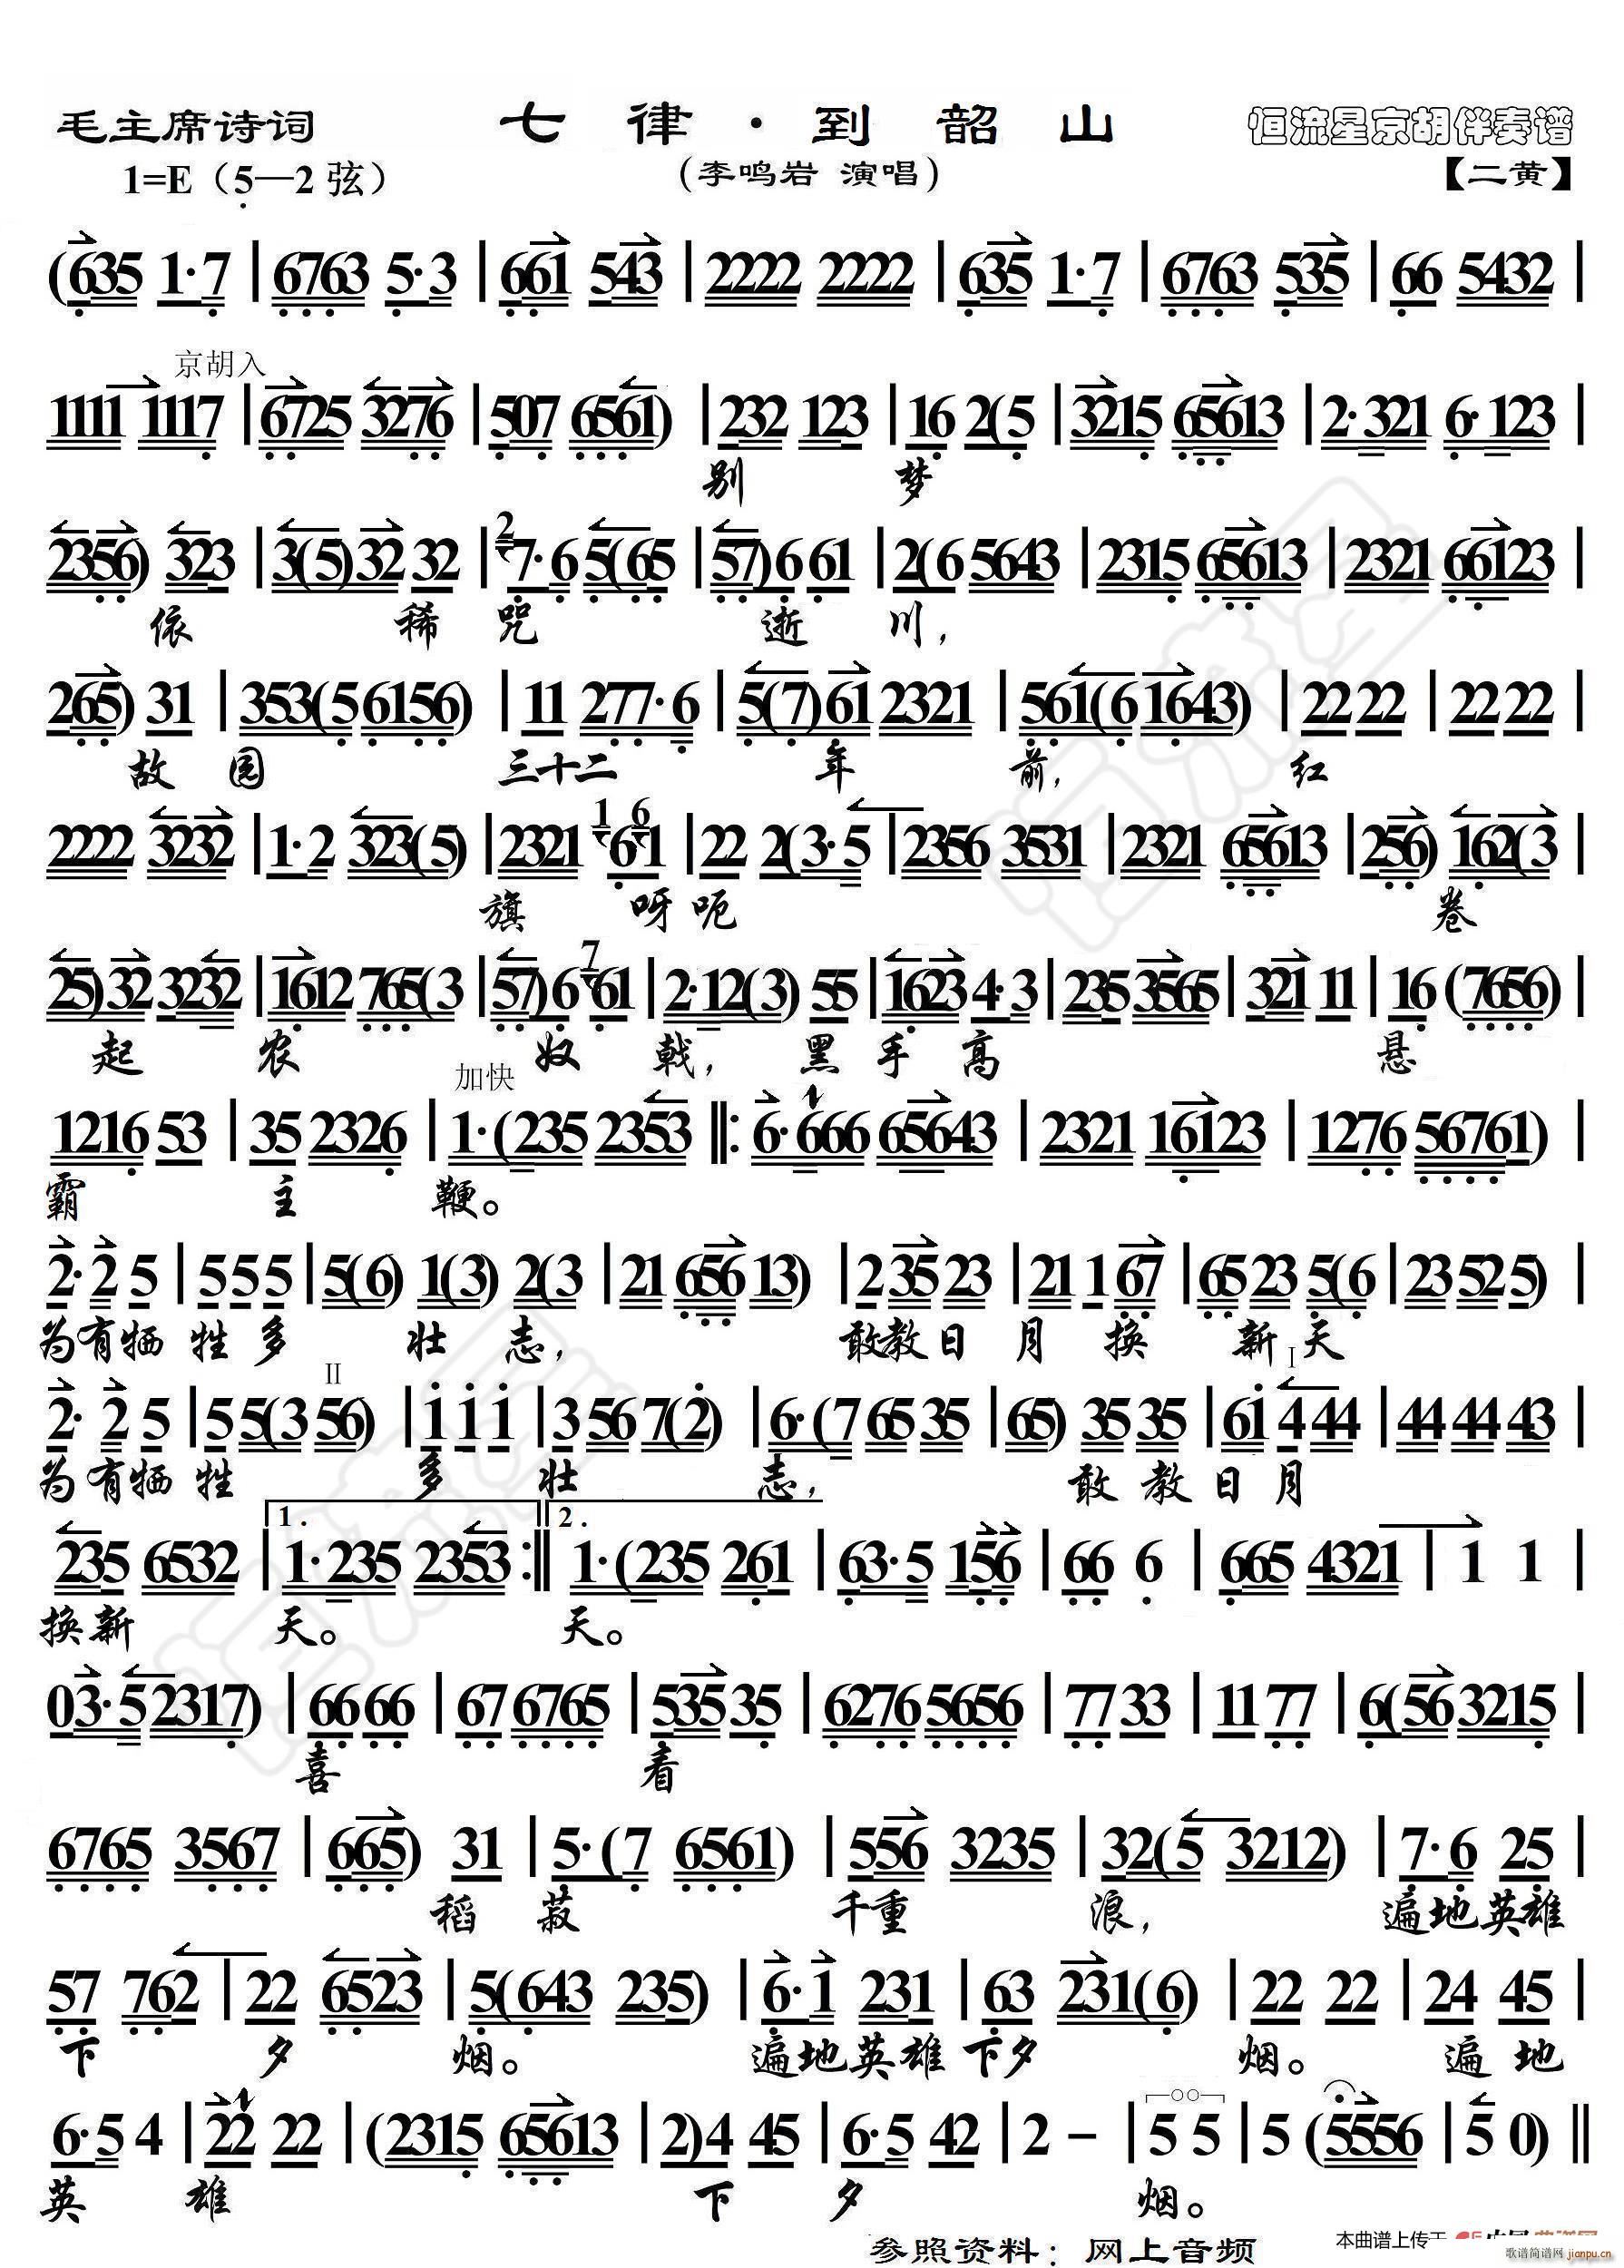 毛主席诗词 七律·到韶山 恒流星京胡伴奏谱
1=E（5—2弦） （李鸣岩 演唱） 【二黄】
(635 1·7 | 6763 5·3 | 661 543 | 2222 2222 | 635 1·7 | 6763 535 | 66 5432 |
京胡入
1111 1117 | 6725 3276 | 507 6561) | 232 123 | 16 2(5 | 3215 65613 | 2·321 6·123 |
别 梦
2356) 323 | 3(5)32 32 | 7·6 5(65 | 57)6 61 | 2(6 5643 | 2315 65613 | 2321 66123 |
依 稀 咒 逝 川，
265) 31 | 353(5 6156) | 11 277·6 | 5(7)61 2321 | 561(6 1643) | 22 22 | 22 22 |
故 园 三十二 年 前， 红
2222 3232 | 1·2 323(5) | 2321 61 | 22 2(3·5 | 2356 3531 | 2321 65613 | 256) 162(3 |
旗 呀 呃 卷
25)32 3232 | 1612 765(3 | 57)6 61 | 2·12(3) 55 | 1623 4·3 | 235 3565 | 321 11 | 16 (7656) |
起 农 奴 戟， 黑 手 高 悬
加快
1216 53 | 35 2326 | 1·(235 2353 ‖: 6·666 65643 | 2321 16123 | 1276 56761) |
霸 主 鞭。
2·2 5 | 5 5 5 | 5(6) 1(3) 2(3 | 21 656 13) | 2 35 23 | 21 1 67 | 65 23 5(6 | 23 52 5) |
为有牺 牲 多 壮 志， 敢教日 月 换 新 天
II I
2·2 5 | 5 5(3 56) | 1 1 1 | 3 56 7(2) | 6·(7 65 35 | 65) 35 35 | 61 4 44 | 44 44 43 |
为有牺 牲 多 壮 志， 敢 教 日 月
1. 2.
235 6532 | 1·235 2353 :‖ 1·(235 261 | 63·5 156 | 66 6 | 665 4321 | 1 1 |
换新 天。 天。
03·5 2317) | 66 66 | 67 6765 | 535 35 | 6276 5656 | 77 33 | 11 77 | 6(56 3215 |
喜 看
6765 3567 | 665) 31 | 5·(7 6561) | 556 3235 | 32(5 3212) | 7·6 25 |
稻 菽 千重 浪， 遍地英雄
57 762 | 22 6523 | 5(643 235) | 6·1 231 | 63 231(6) | 22 22 | 24 45 |
下 夕 烟。 遍地英雄 下夕 烟。 遍 地
6·5 4 | 22 22 | (2315 65613 | 2)4 45 | 6·5 42 | 2 – | 5 5 | 5 (5556 | 5 0) ‖
英 雄 下 夕 烟。
参照资料：网上音频
本曲谱上传于
歌谱简谱网
jianpu.cn